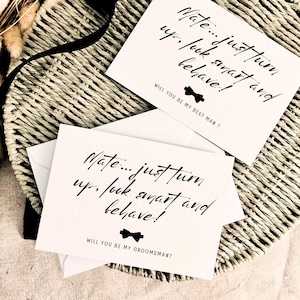 Mate... just turn
up, look smart and
behave!
WILL YOU BE MY BEST MAN?
Mate... just turn
up, look smart and
behave!
WILL YOU BE MY GROOMSMAN?